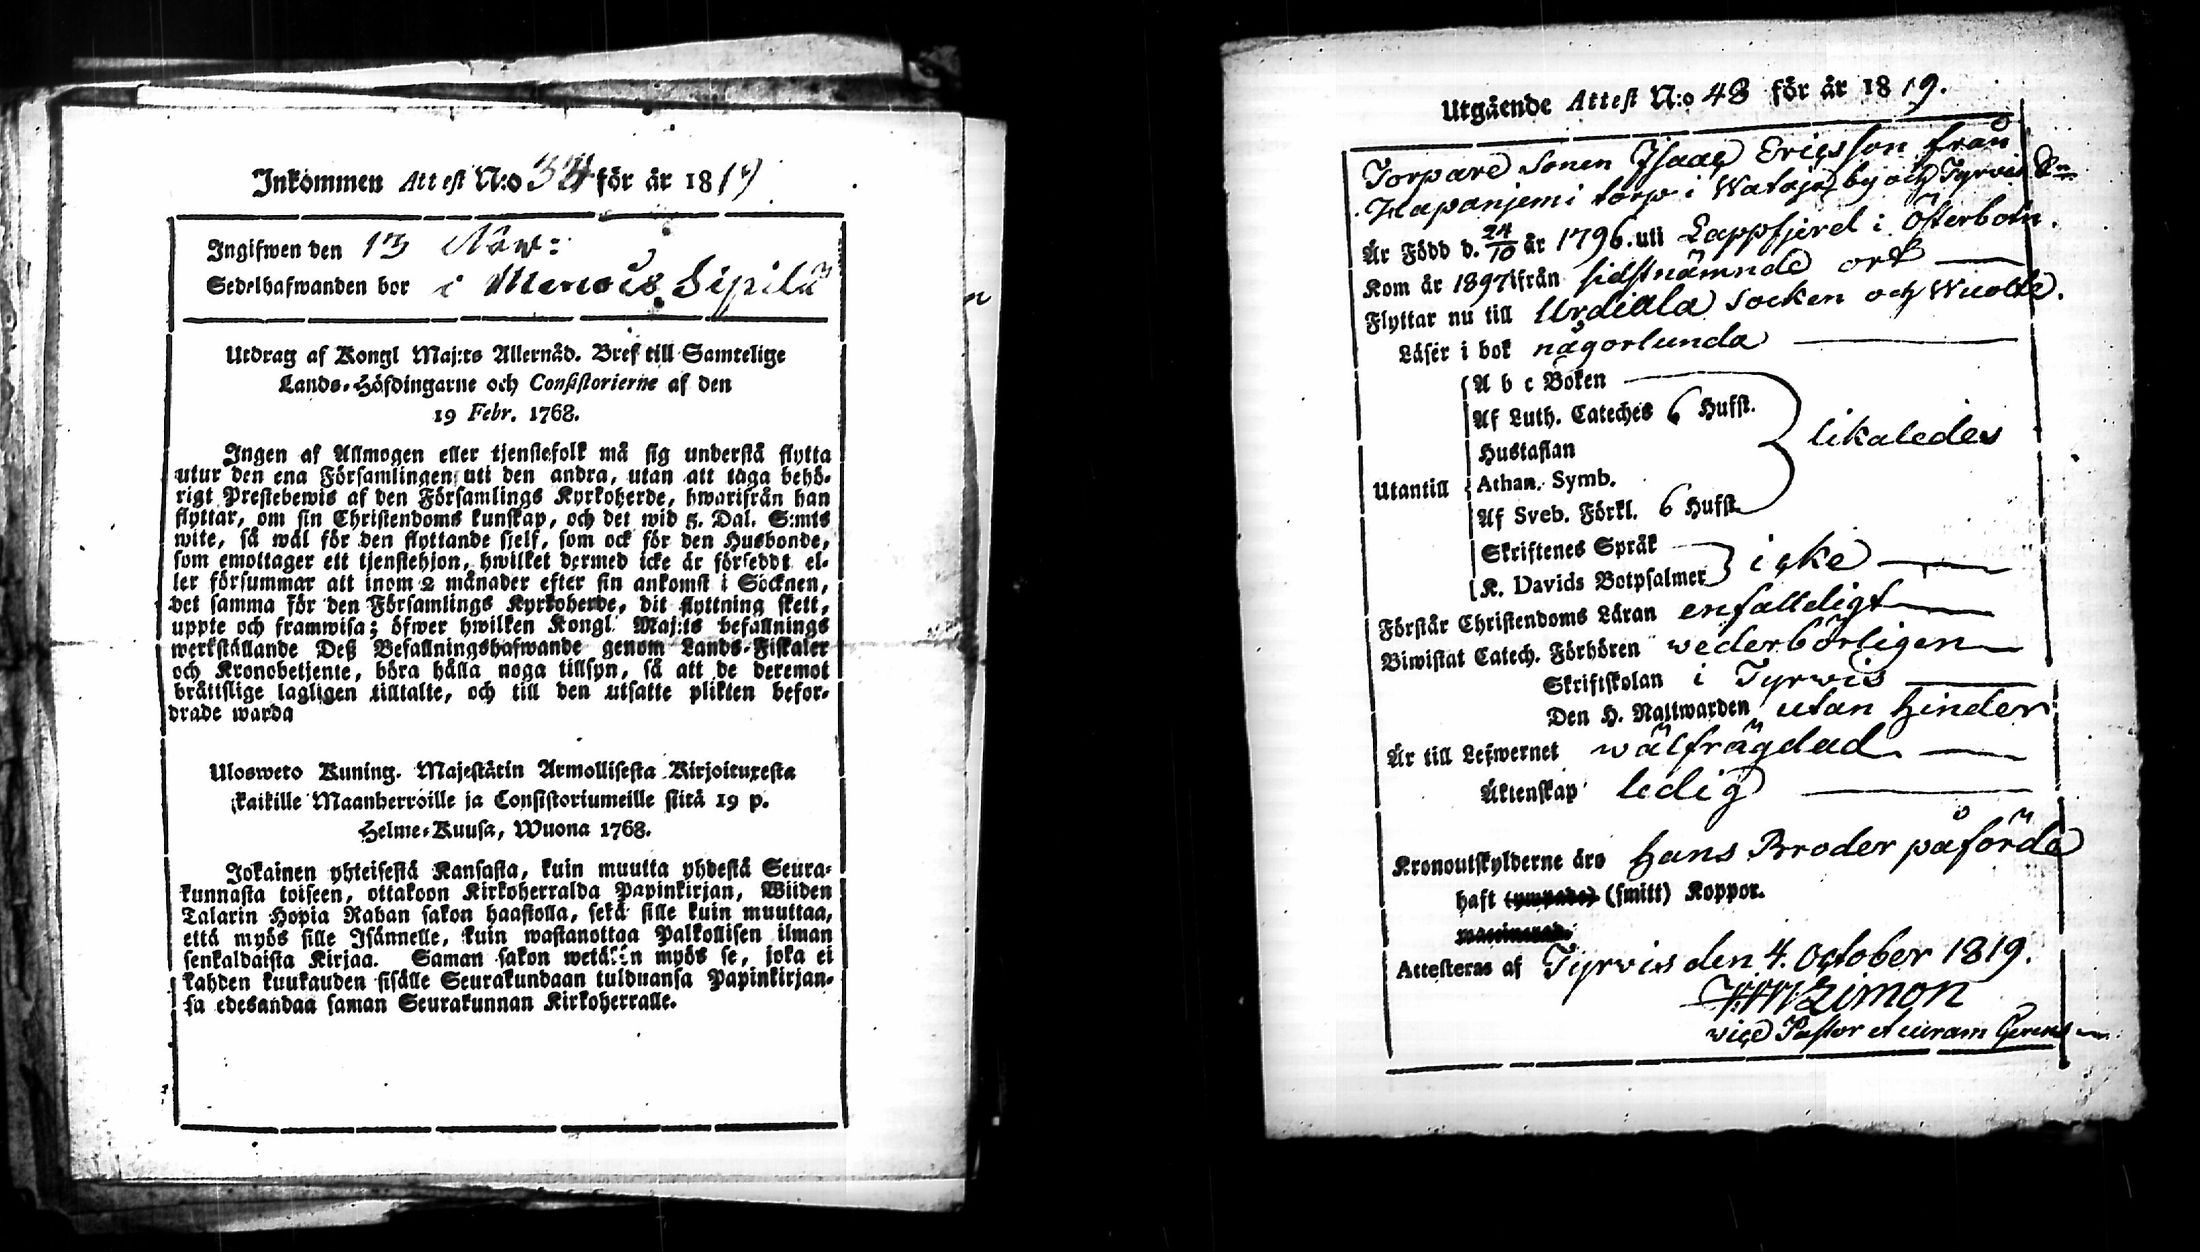 Inkommen Attest N:o 34 för år 1819
Ingifwen den 13 Nov:
Sedelhafwanden bor i Menois Sipilä
Utdrag af Kongl Maj:ts Allernåd. Bref till Samtelige
Lands-Höfdingarne och Consistorierne af den
19 Febr. 1768.
Ingen af Allmogen eller tjenstefolk må sig understå flytta
utur den ena Församlingen uti den andra, utan att taga behö-
rigt Prestebewis af den Församlings Kyrkoherde, hwarifrån han
flyttar, om sin Christendoms kunskap, och det wid 5. Dal. S:mts
wite, så wäl för den flyttande sjelf, som ock för den Husbonde,
som emottager ett tjenstehjon, hwilket dermed icke är försedt el-
ler försummar att inom 2 månader efter sin ankomst i Socknen,
det samma för den Församlings Kyrkoherde, dit flyttning skett,
uppte och framwisa; öfwer hwilken Kongl Maj:ts befallnings
werkställande Deß Befallningshafwande genom Lands-Fiskaler
och Kronobetjente, böra hålla noga tillsyn, så att de deremot
bråttslige lagligen tilltalte, och till den utsatte plikten befor-
drade warda
Ulosweto Kuning. Majestätin Armollisesta Kirjoituxesta
kaikille Maanherroille ja Consistoriumeille siitä 19 p.
Helme-Kuusa, Wuona 1768.
Jokainen yhteisestä Kansasta, kuin muutta yhdestä Seura-
kunnasta toiseen, ottakoon Kirkoherralda Papinkirjan, Wiiden
Talarin Hopia Rahan sakon haastolla, sekä sille kuin muuttaa,
että myös sille Isännelle, kuin wastanottaa Palkollisen ilman
senkaldaista Kirjaa. Saman sakon wetään myös se, joka ei
kahden kuukauden sisälle Seurakundaan tulduansa Papinkirjan-
sa edesandaa saman Seurakunnan Kirkoherralle.
Utgående Attest N:o 48 för år 1819.
Torpare Sonen Isaac Ericsson från
Haapanjemi torp i Wataja by och Tyrvis Sn
År Född d. 24/10 år 1796. uti Lappfjerd i Österbotn.
Kom år 1897 ifrån sidstnämnde ort
Flyttar nu till Urdiala Socken och Wuolle.
Läser i bok någorlunda
A b c Boken
Af Luth. Cateches 6 Hufst.
Hustaflan
likaledes
Utantill Athan. Symb.
Af Sveb. Förkl. 6 Hufst.
Skriftenes Språk
K. Davids Botpsalmer icke
Förstår Christendoms Läran enfalldeligt
Biwistat Catech. Förhören wederbörligen
Skriftskolan i Tyrvis
Den H. Nattwarden utan hinder
Är till Lefwernet wälfrägdad
Äktenskap ledig
Kronoutskylderne äro Hans Broder påförde
haft (ympade) (smitt) Koppor.
Attesteras af Tyrvis den 4. October 1819.
Zimon
vice Pastor et curam Gerens